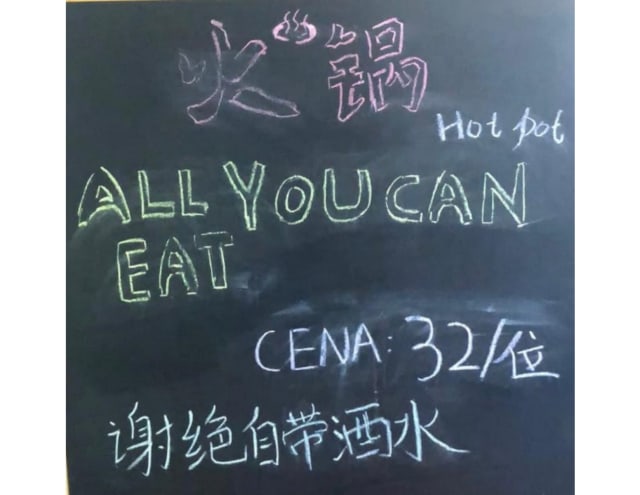 火锅
Hot pot
ALL YOU CAN
EAT
CENA: 32/位
谢绝自带洒水